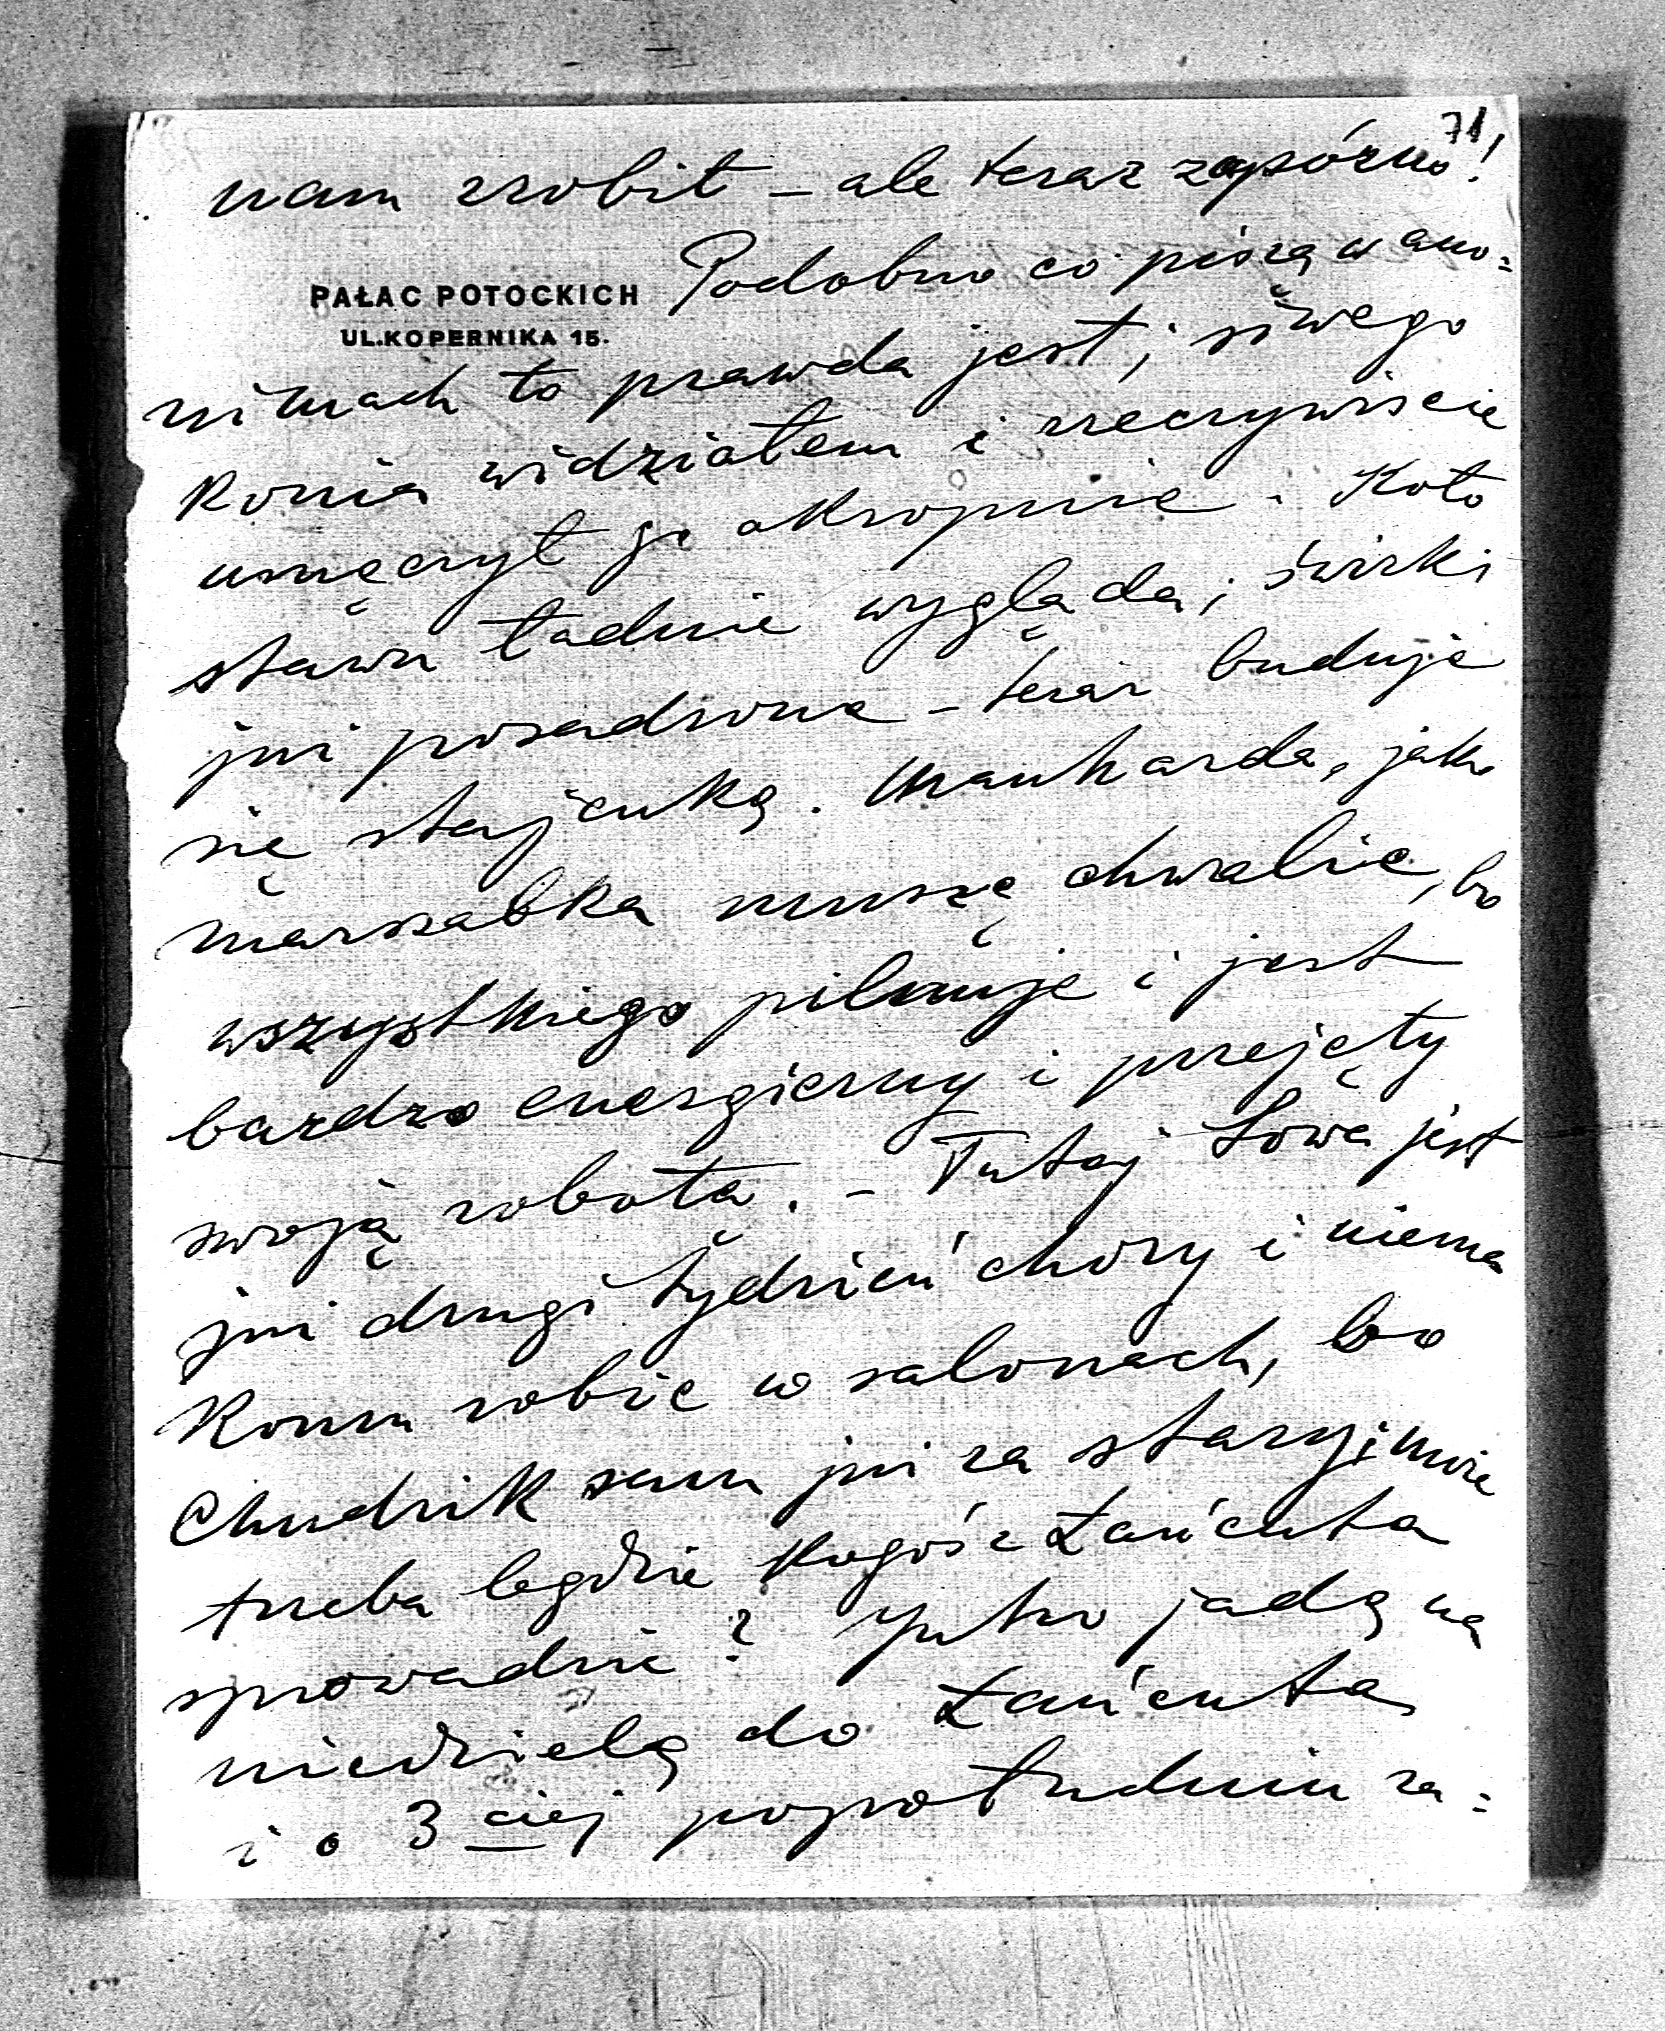 71
nam zrobił – ale teraz zapóźno!
Podobno co piszą w ano=
PAŁAC POTOCKICH
UL.KOPERNIKA 15.
nimach to prawda jest; siwego
konia widziałem i rzeczywiście
umęczył go okropnie. Koło
stawu ładnie wygląda; świrki
już posadzone – teraz buduje
się stajenką. Manharda, jako
marszałka muszę chwalić, bo
wszystkiego pilnuje i jest
bardzo energiczny i przejęty
swoją robotą. – Tutaj Sowa jest
już drugi tydzień chory i niema
komu robić w salonach, bo
Chudzik sam już za stary; może
trzeba będzie kogoś z Łańcuta
sprowadzić? Jutro jadę na
niedzielę do Łańcuta
i o 3 ciej popołudniu za=